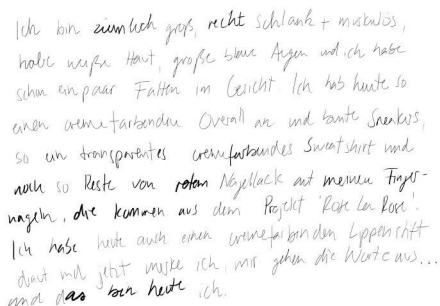 Ich bin ziemlich groß, recht schlank + muskulös,
habe weiße Haut, große blaue Augen und ich habe
schon ein paar Falten im Gesicht. Ich hab heute so
einen cremefarbenden Overall an und bunte Sneakers,
so ein transparentes cremefarbendes Sweatshirt und
noch so Reste von rotem Nagellack auf meinen Finger-
nägeln, die kommen aus dem Projekt
Ich habe heute auch einen cremefarbenden Lippenstift
drauf und jetzt merke ich, mir gehen die Worte aus...
und das bin heute ich.